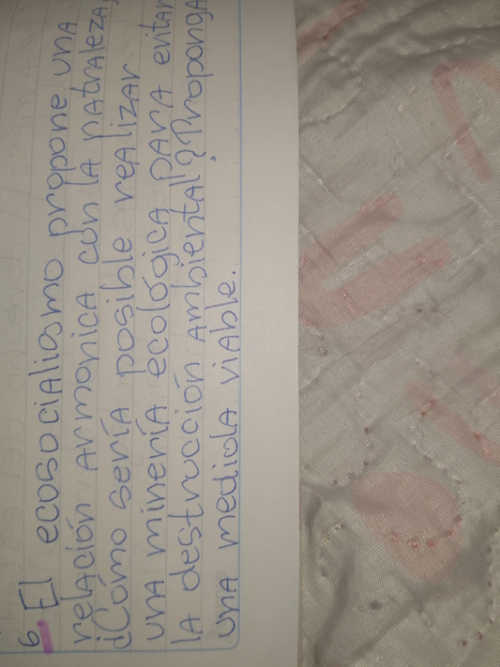 6. El ecosocialismo propone una
relación armonica con la natraleza,
¿Cómo sería posible realizar
una minería ecológica para evitar
la destrucción ambiental? Proponga
una medida viable.